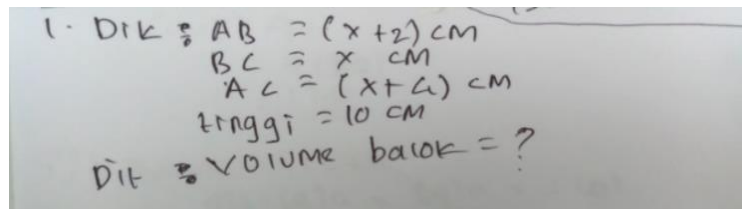 1. Dik : AB = (x +2) cm
BC = x cm
AC = (x+4) cm
tinggi = 10 cm
Dit : Volume balok = ?